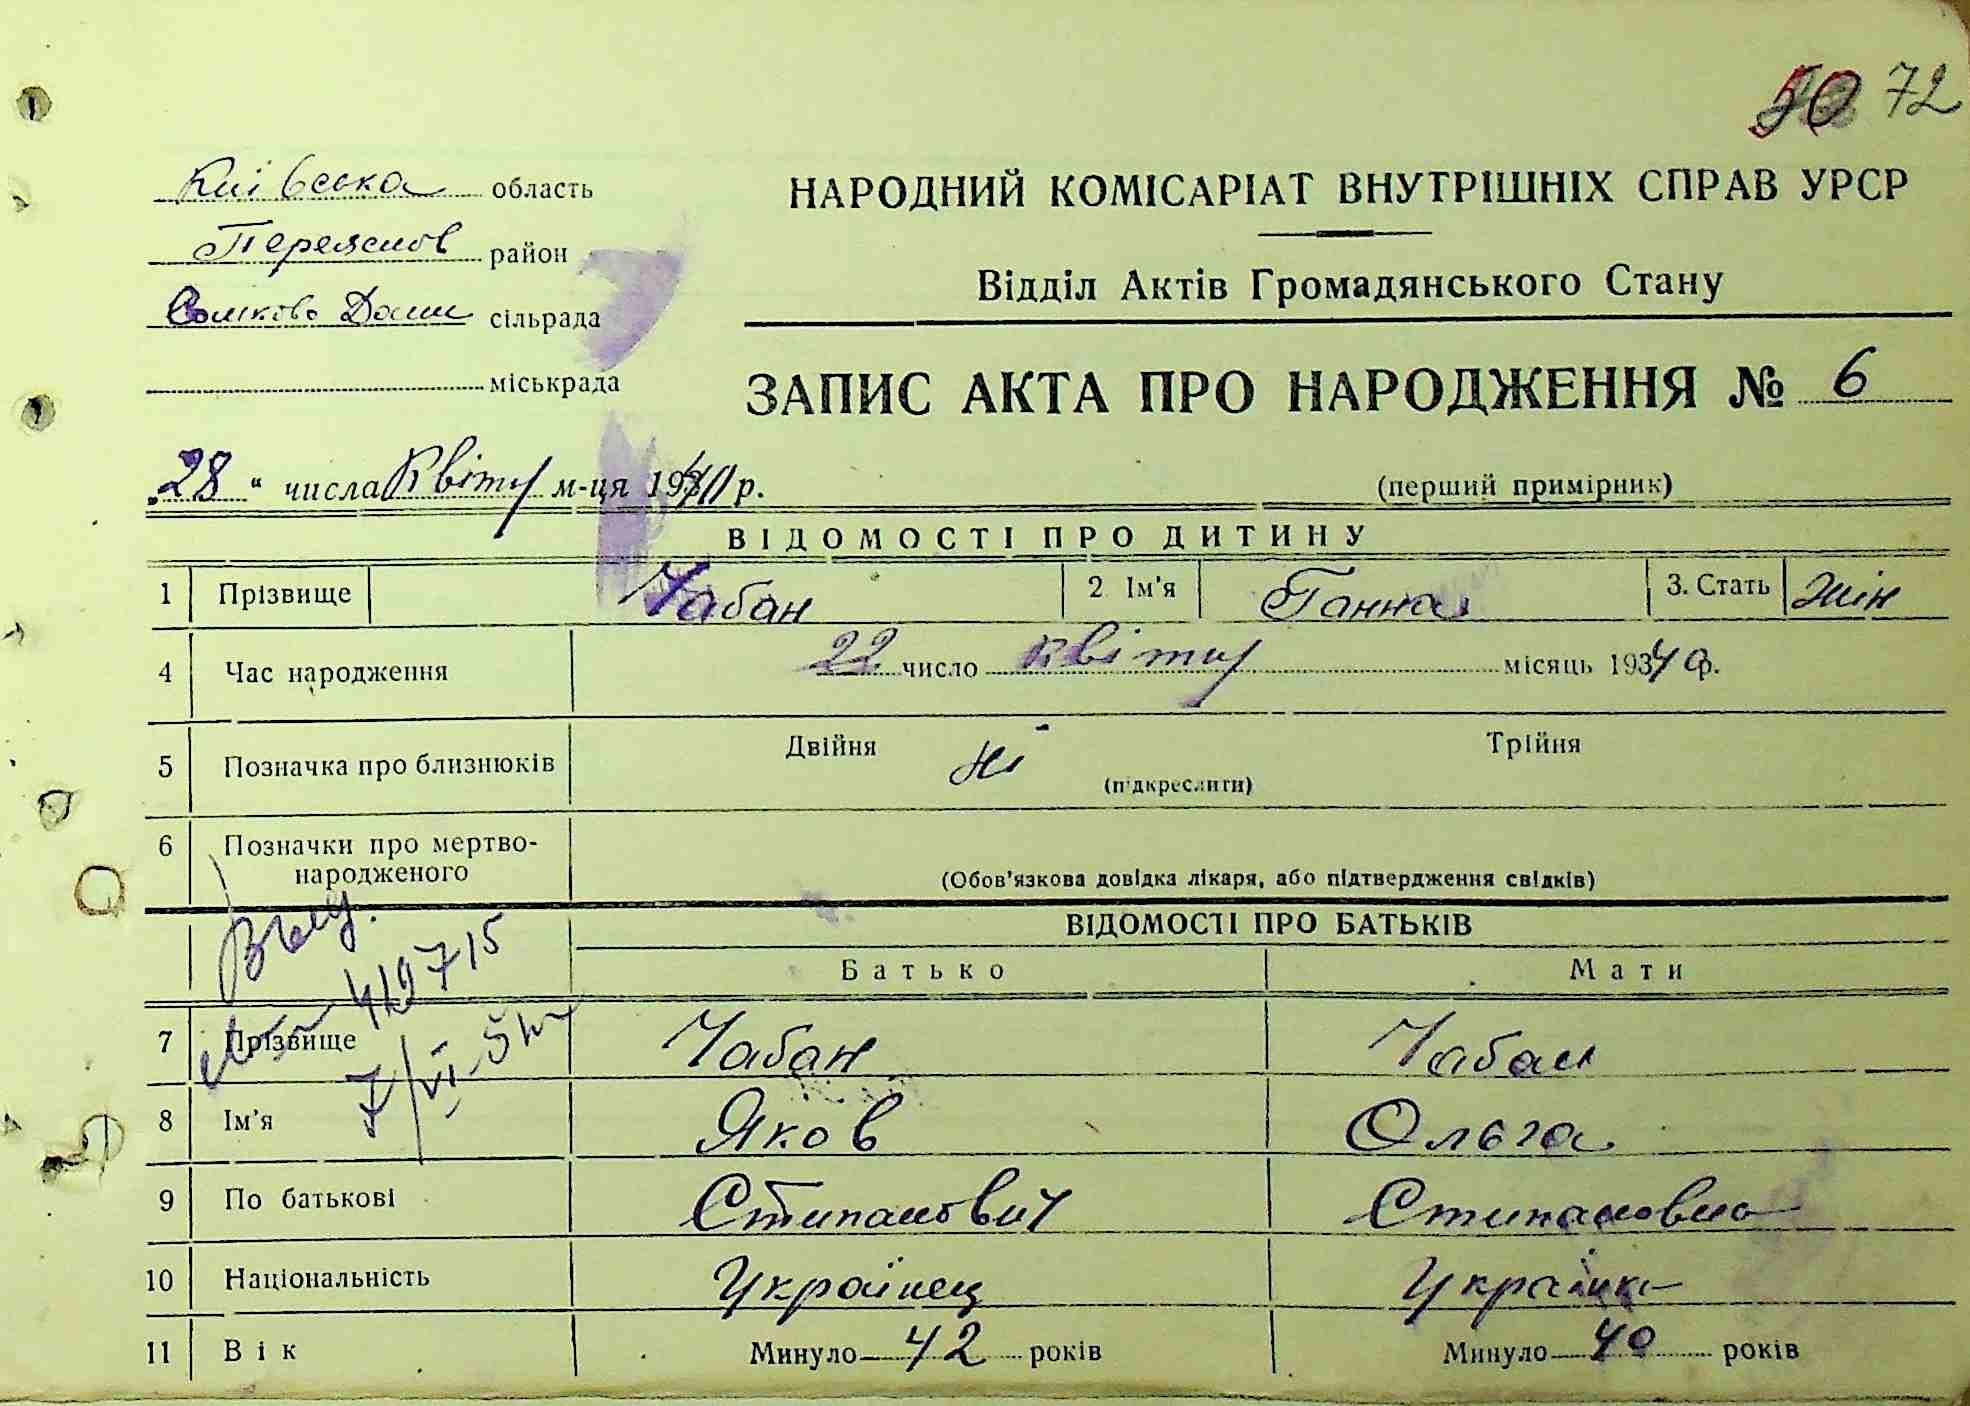 50 72
Київська область
НАРОДНИЙ КОМІСАРІАТ ВНУТРІШНІХ СПРАВ УРСР
Переяслов район
Відділ Актів Громадянського Стану
Сомково Доли сільрада
міськрада
ЗАПИС АКТА ПРО НАРОДЖЕННЯ № 6
„28“ числа Квітн м-ця 1940 р.
(перший примірник)
ВІДОМОСТІ ПРО ДИТИНУ
1 Прізвище Чабан 2 Ім'я Ганна 3. Стать жін
4 Час народження 22 число квітн місяць 1940 р.
5 Позначка про близнюків Двійня ні Трійня
(підкреслити)
6 Позначки про мертво-
народженого
(Обов'язкова довідка лікаря, або підтвердження свідків)
ВІДОМОСТІ ПРО БАТЬКІВ
Выд.
419715
Батько Мати
7 Прізвище Чабан Чабан
7/VI
8 Ім'я Яков Ольга
9 По батькові Стипанович Стипановна
10 Національність Українец Українка
11 Вік Минуло 42 років Минуло 40 років